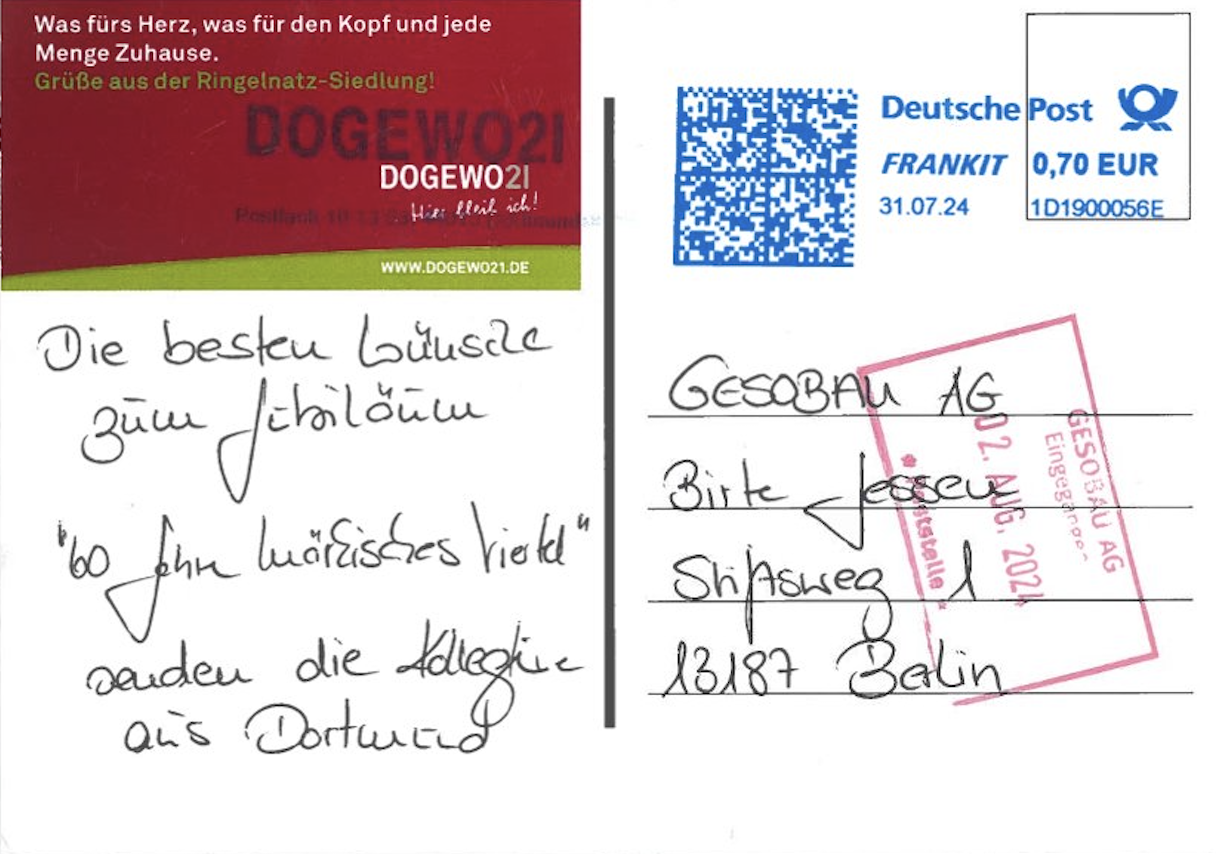 Was fürs Herz, was für den Kopf und jede
Menge Zuhause.
Grüße aus der Ringelnatz-Siedlung!
DOGEWO21
DOGEWO21
Hier bleib ich!
Postfach
WWW.DOGEWO21.DE
Die besten Wünsche
zum Jubiläum
"60 Jahre Märkisches Viertel"
senden die
aus Dortmund
Deutsche Post
FRANKIT 0,70 EUR
31.07.24 1D1900056E
GESOBAU AG
Birte Jessen
Stiftsweg 1
13187 Berlin
GESOBAU AG
Eingegangen
02. AUG. 2024
* Poststelle *